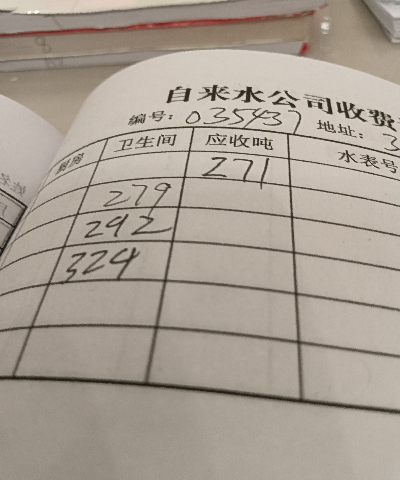 自来水公司收费
编号: 035437 地址: 3
厨房 卫生间 应收吨 水表号
271
279
292
324